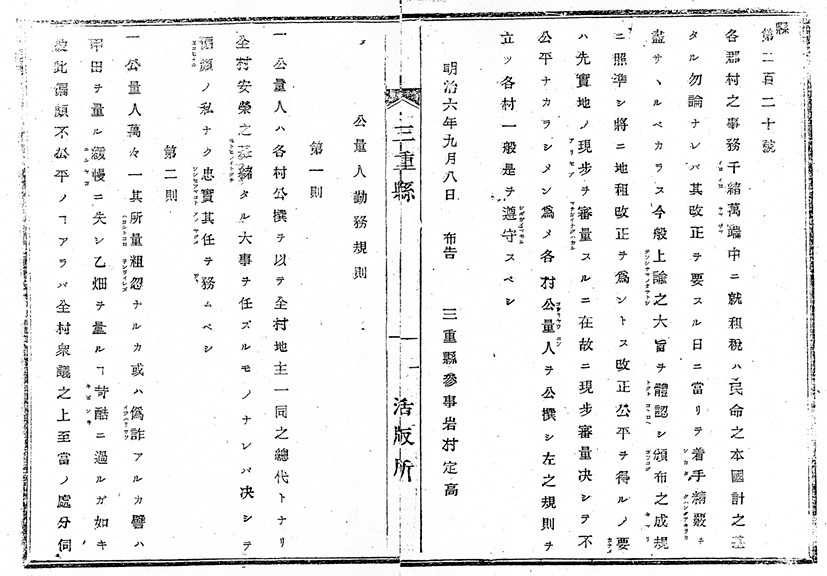 縣
第二百二十號
各郡村之事務千緒萬端中ニ就租税ハ民命之本國計之基
タル勿論ナレバ其改正ヲ要スル日ニ當リテ着手精覈ヲ
盡サヽルベカラス今般上諭之大旨ヲ體認シ頒布之成規
ニ照準シ將ニ地租改正ヲ爲ントス改正公平ヲ得ルノ要
ハ先實地ノ現歩ヲ審量スルニ在故ニ現歩審量决シテ不
公平ナカラシメン爲メ各村公量人ヲ公撰シ左之規則ヲ
立ツ各村一般是ヲ遵守スベシ
明治六年九月八日 布告 三重縣參事岩村定高
三重縣
一
活版所
公量人勤務規則
第一則
一 公量人ハ各村公撰ヲ以テ全村地主一同之總代トナリ
全村安榮之基緒タル大事ヲ任ズルモノナレバ决シテ
偏頗ノ私ナク忠實其任ヲ務ムベシ
第二則
一 公量人萬々一其所量粗忽ナルカ或ハ僞詐アルカ譬ハ
甲田ヲ量ル緩慢ニ失シ乙畑ヲ量ルヿ苛酷ニ過ルガ如キ
彼此偏頗不公平ノヿアラバ全村衆議之上至當ノ處分伺